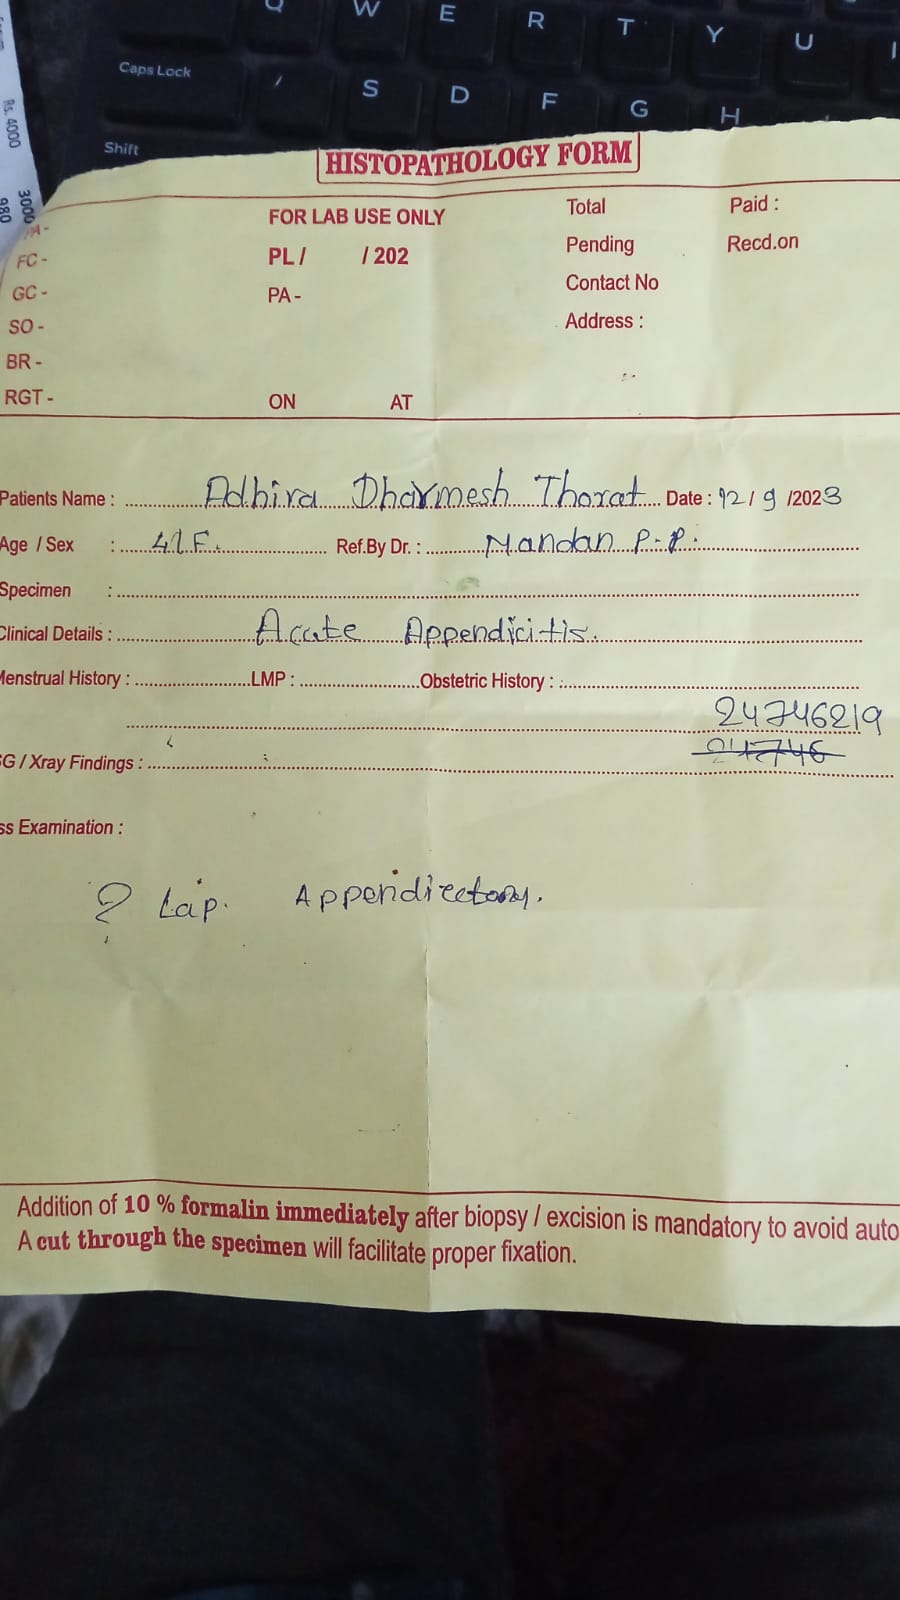 Q W E R T Y U I
Caps Lock
S D F G H
Shift
Rs. 4000
3000
980
HISTOPATHOLOGY FORM
FOR LAB USE ONLY
Total Paid :
PA -
PL / / 202
Pending Recd.on
FC -
GC -
PA -
Contact No
SO -
Address :
BR -
RGT -
ON AT
Patients Name : Adhira Dharmesh Thorat Date : 12 / 9 /2023
Age / Sex : 41F. Ref.By Dr. : Mandan P.P.
Specimen :
Clinical Details : Acute Appendicitis.
Menstrual History : LMP : Obstetric History :
24746219
24746
G / Xray Findings :
ss Examination :
? Lap. Appendicetomy.
Addition of 10 % formalin immediately after biopsy / excision is mandatory to avoid auto
A cut through the specimen will facilitate proper fixation.